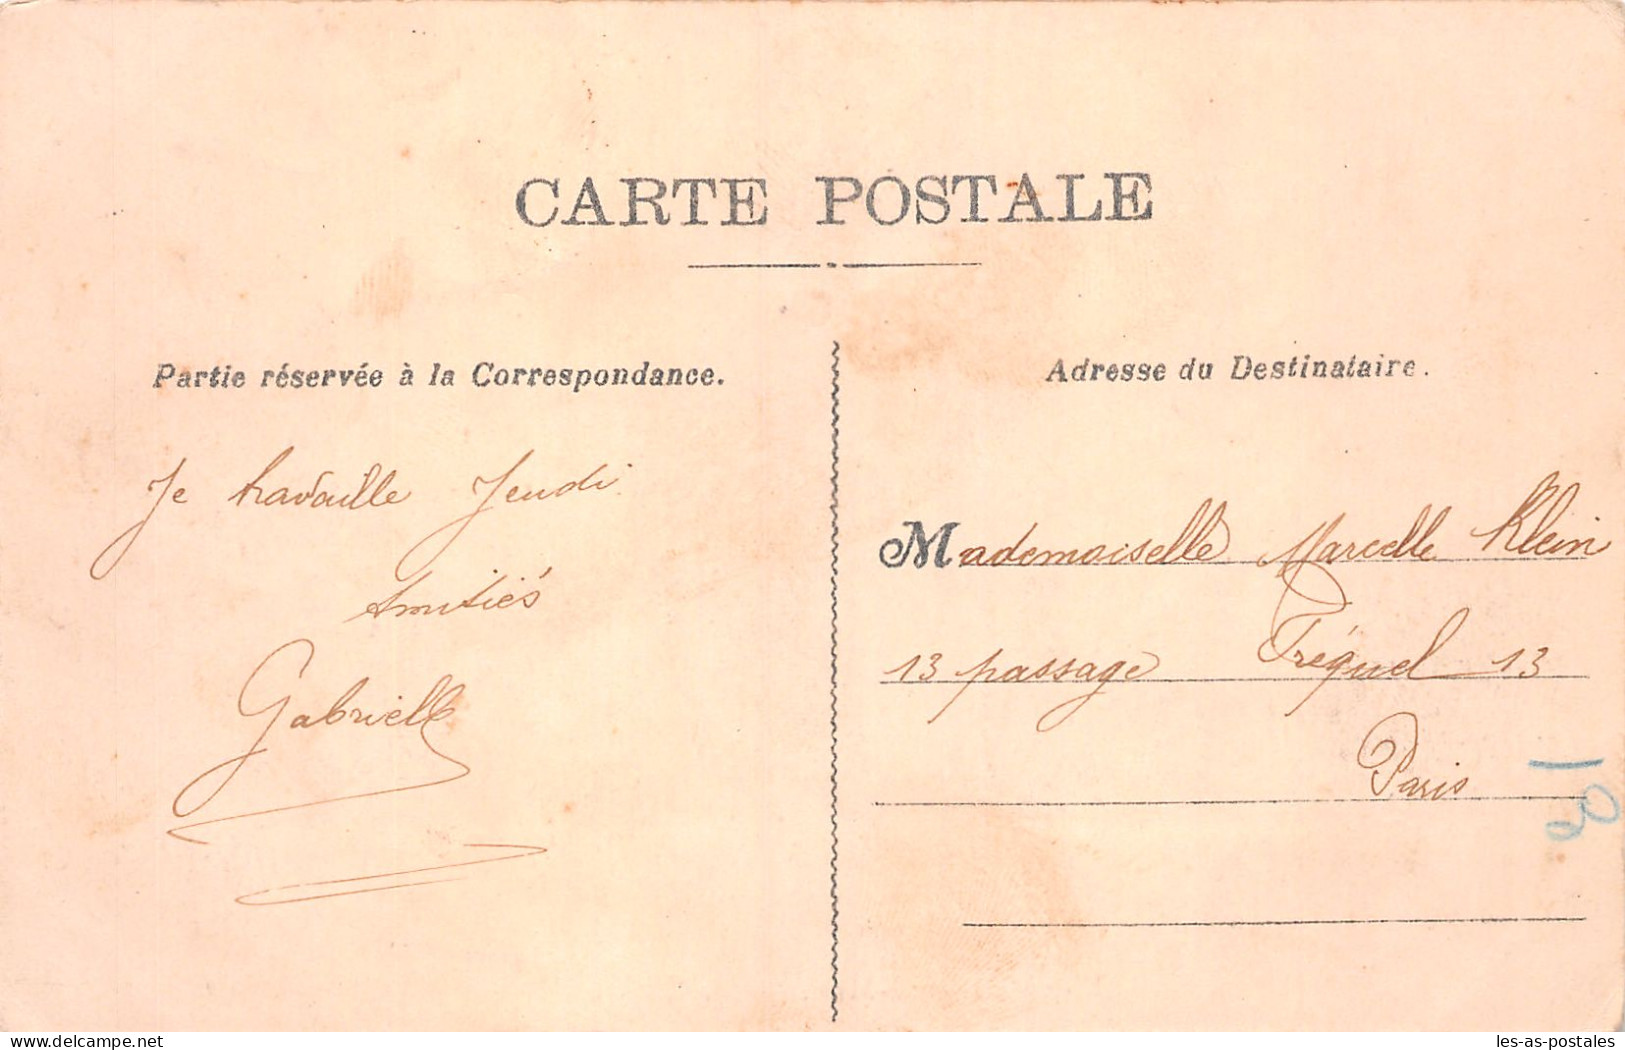 CARTE POSTALE
Partie réservée à la Correspondance.
Adresse du Destinataire.
Je travaille Jeudi
Amitiés
Gabrielle
Mademoiselle Marcelle Klein
13 passage Fréquel 13
Paris
20
delcampe.net
les-as-postales